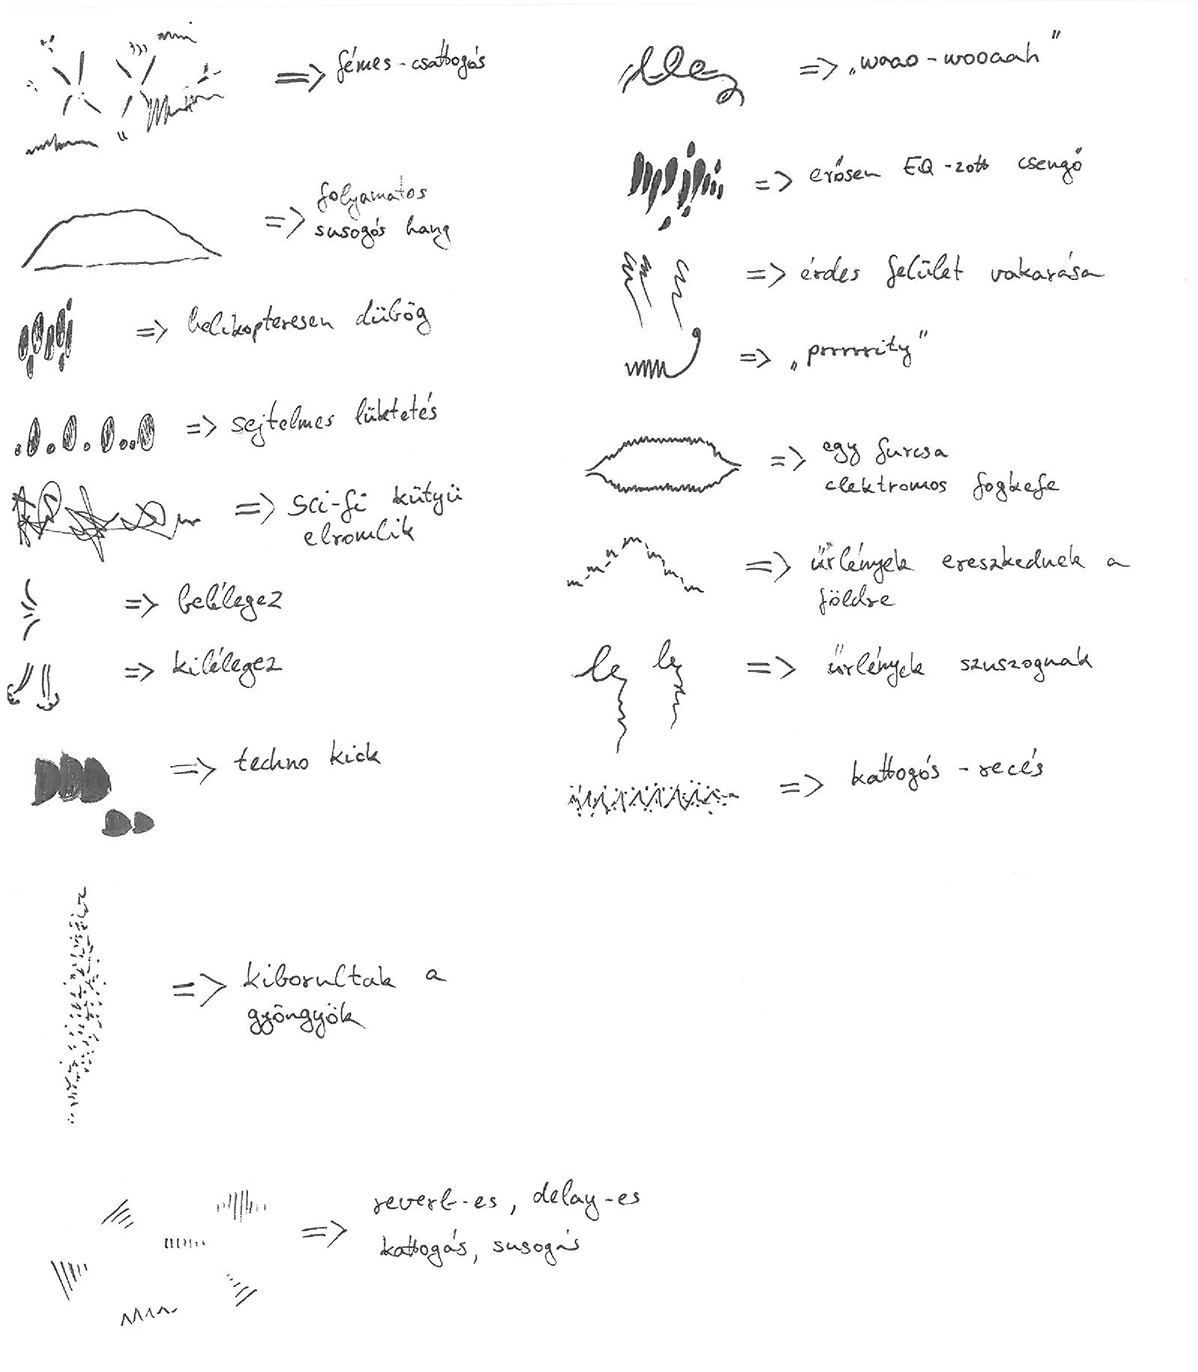 => fémes-csattogás
=> folyamatos
susogós hang
=> helikopteresen dübög
=> sejtelmes lüktetés
=> sci-fi kütyü
elromlik
=> belélegez
=> kilélegez
=> techno kick
=> kiborultak a
gyöngyök
=> reverb-es, delay-es
kattogás, susogás
=> „waao-wooaah”
=> erősen EQ-zott csengő
=> érdes felület vakarása
=> „prrrrrity”
=> egy furcsa
elektromos fogkefe
=> űrlények ereszkednek a
földre
=> űrlények szuszognak
=> kattogós-recés